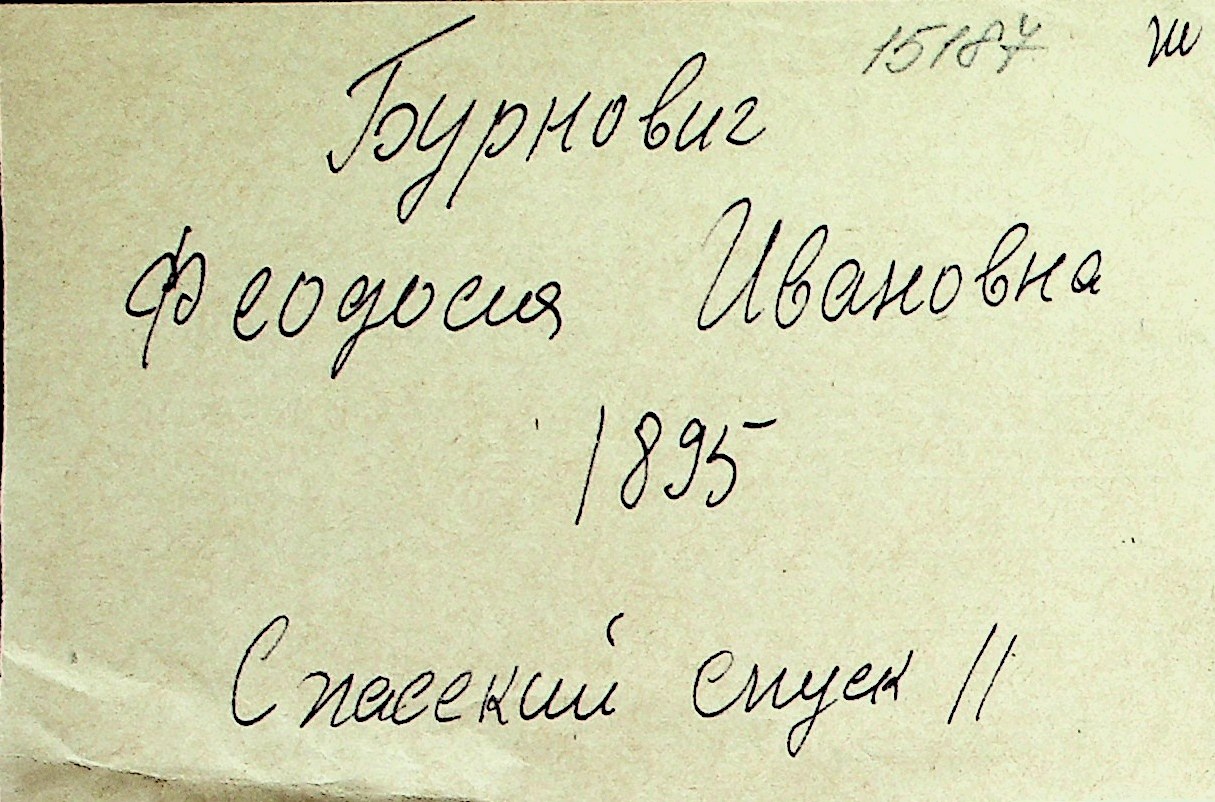 15187
Бурнович
Феодосия Ивановна
1895
Спасский спуск 11